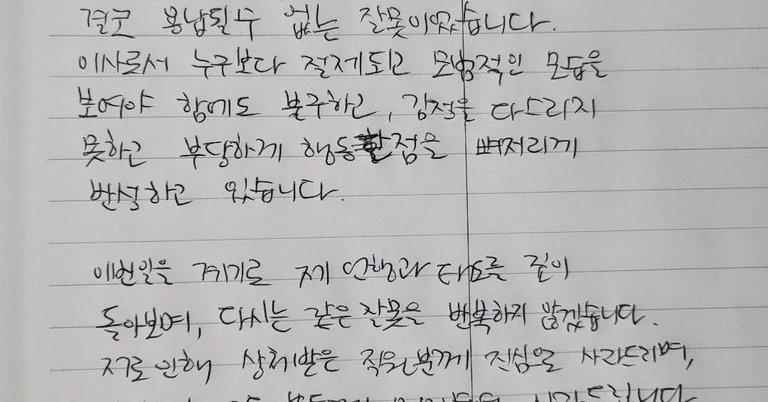 결코 용납될 수 없는 잘못이었습니다.
이사로서 누구보다 절제되고 모범적인 모습을
보여야 함에도 불구하고, 감정을 다스리지
못하고 부당하게 행동한 점을 뼈저리게
반성하고 있습니다.
이번일을 계기로 제 언행과 태도를 깊이
돌아보며, 다시는 같은 잘못을 반복하지 않겠습니다.
저로 인해 상처받은 직원분께 진심으로 사과드리며,